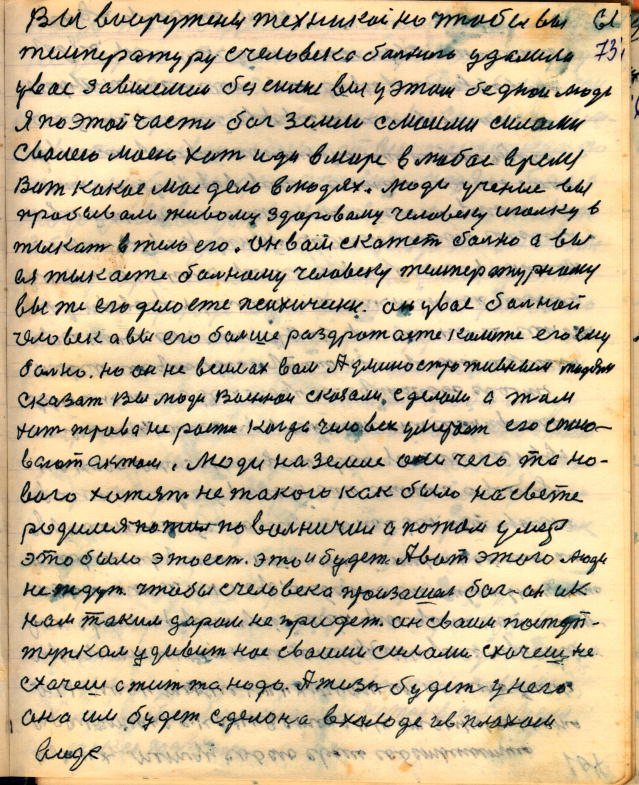 Вы вооружены техникой но чтобы вы
73
температуру с человека болного удалили
у вас зависемли бу силы вы у этом бедной люди
Я по этой части бог земли с моими силами
сваею моею хот иди в море в любое время
Вот какое мое дело в людях. люди ученые вы
пробывали живому здоровому человеку иголку в
тыкат в тело его. Он вам скажет болно а вы
ея тыкаете болному человеку температурному
вы же его делаете психически. он у вас болной
человек а вы его болше раздражаете колите его ему
болно. но он не всилах вам Админостротивным людям
сказат Вы люди Военной сказали, сделали а там
хот трава не расти Когда человек умерает его списо-
вают актом. Люди на земле они чего та но-
вого хотят не такого как было на свете
родился пожил по волничил а потом умер
это было это ест. это и будет. А вот этого люди
не ждут. чтобы с человека произашол бог он и к
нам таким даром не придет. он своим поступ-
тупкам удивит нас своими силами схочеш не
схочеш а жит та надо. А жизн будет у него
она им будет сделона в холоде и в плохом
виде